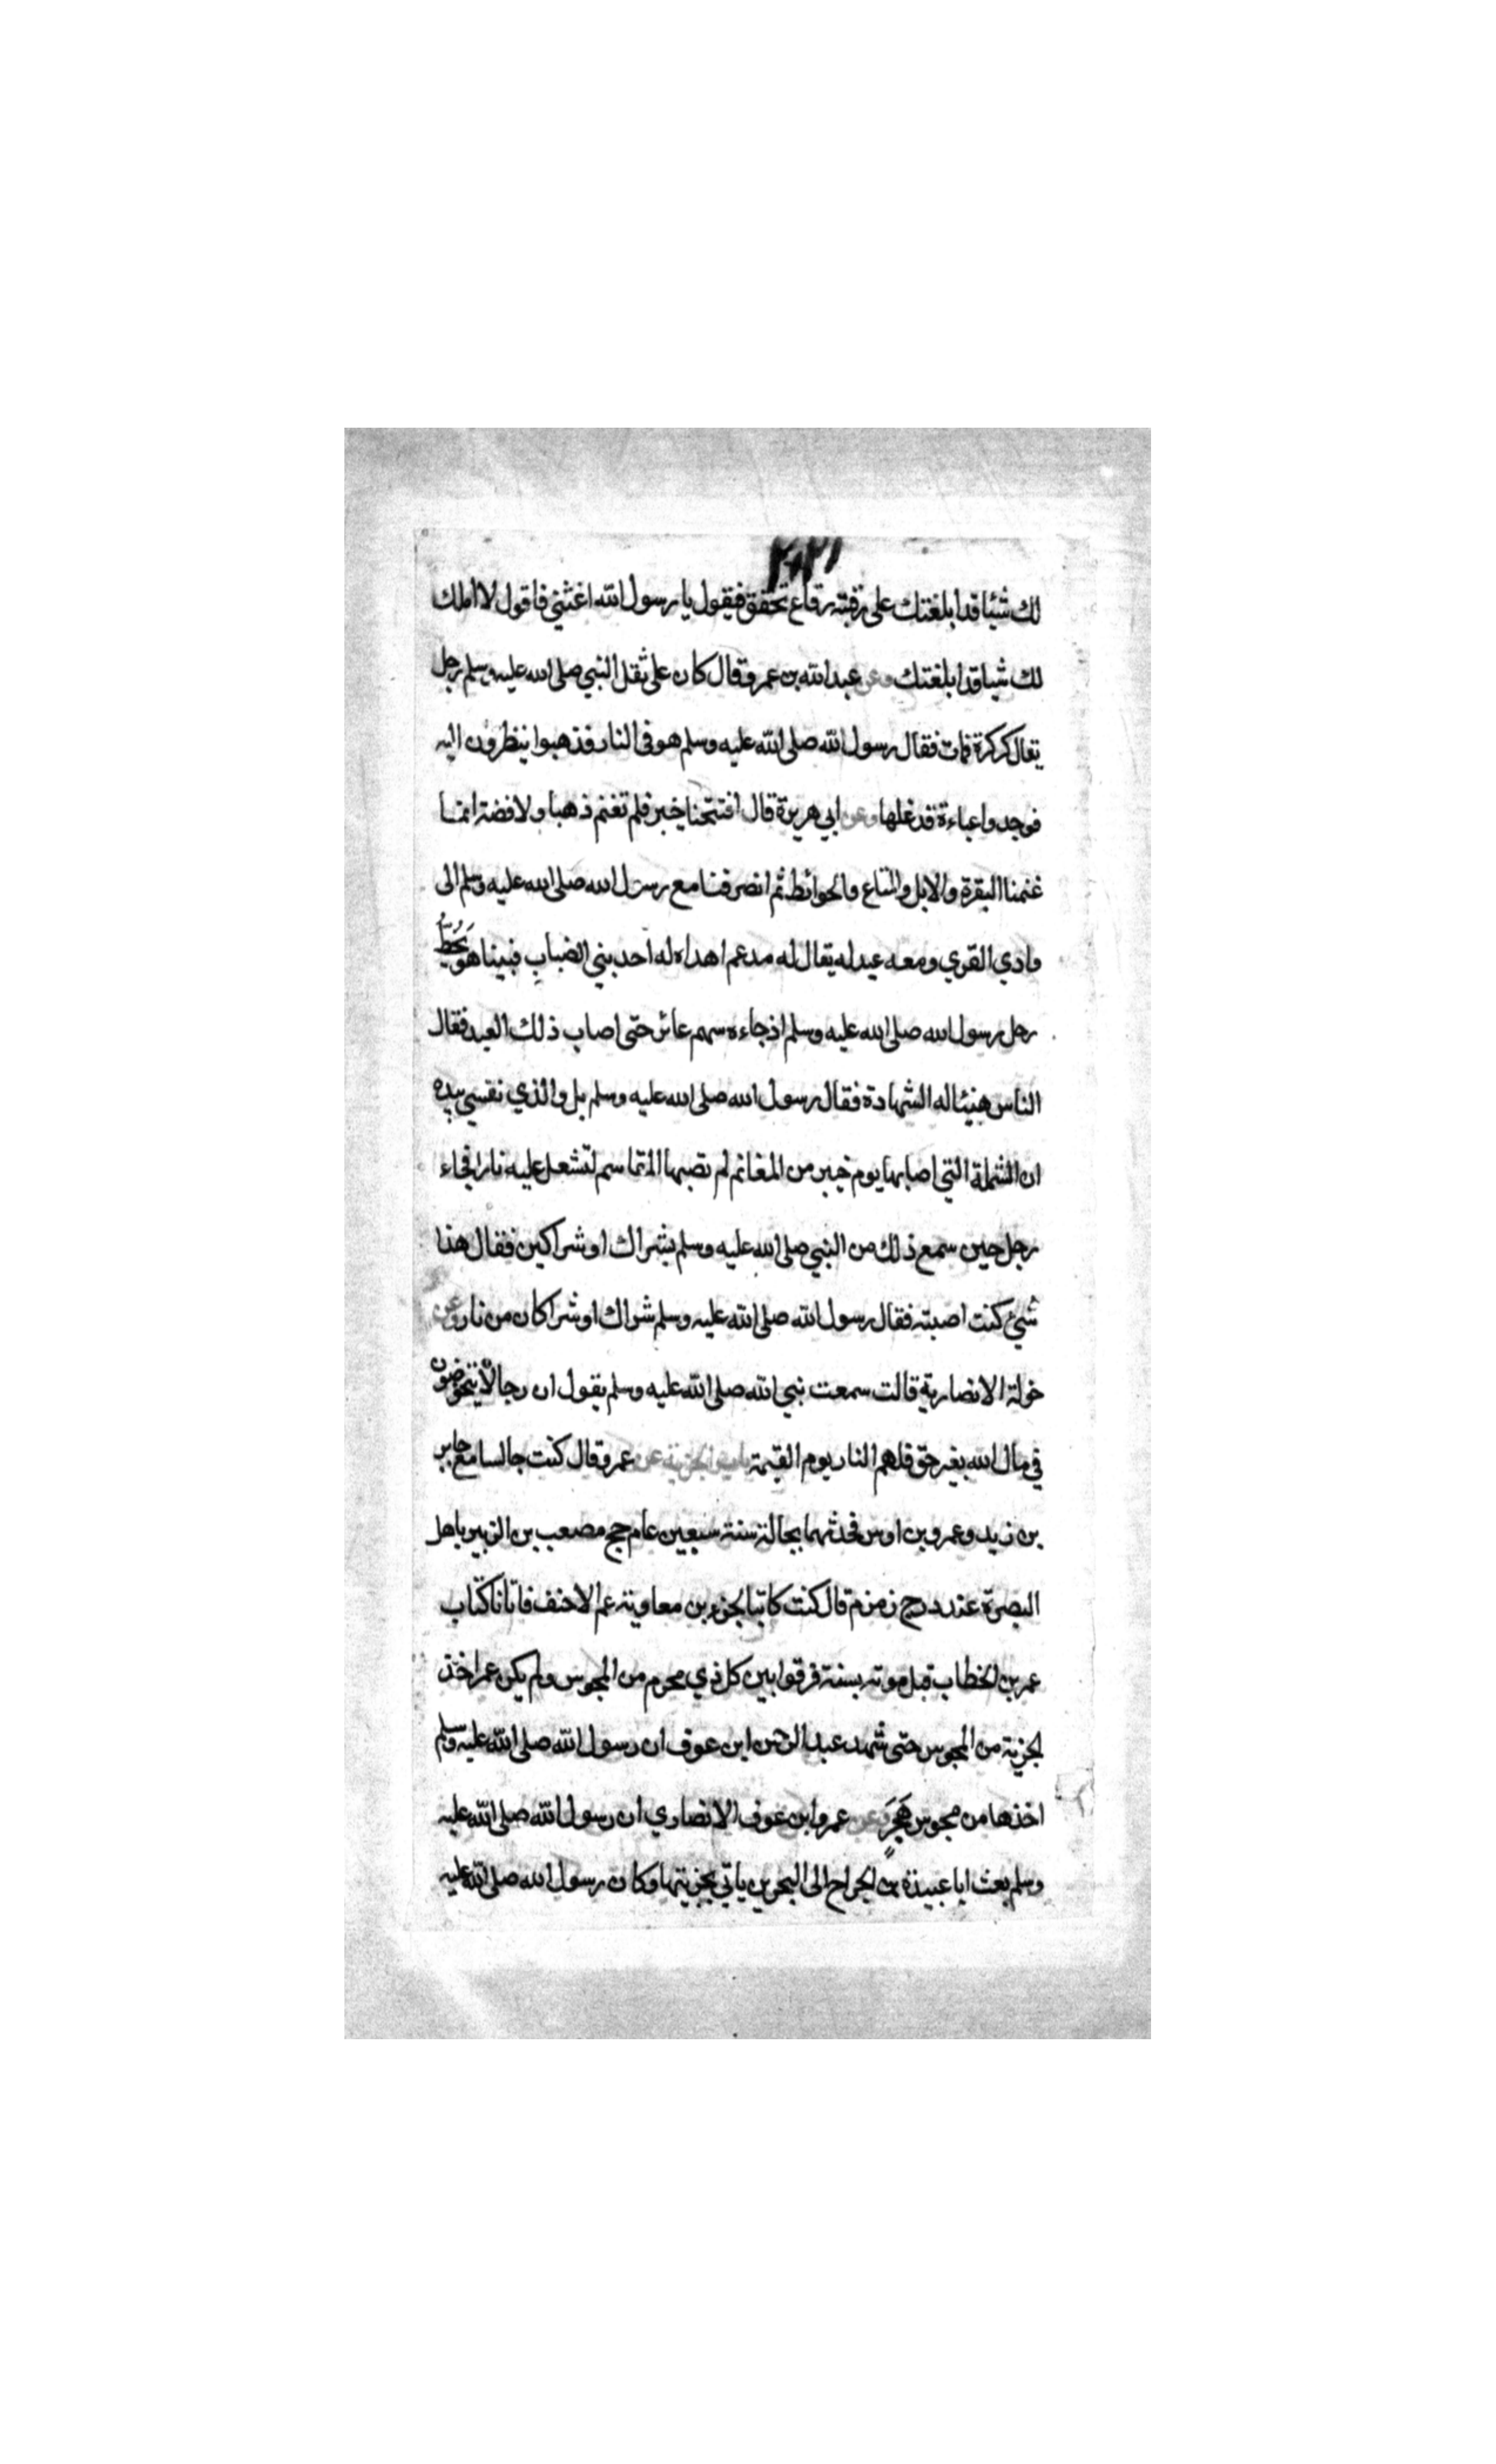 لك شيئا قد ابلغتك على رقبته رقاع تخفق فيقول يا رسول الله اغثني فاقول لا املك
لك شيا قد ابلغتك وعن عبد الله بن عمرو قال كان على ثقل النبي صلى الله عليه وسلم رجل
يقال كركرة فمات فقال رسول الله صلى الله عليه وسلم هو في النار فذهبوا ينظرون اليه
فوجدوا عباءة قد غلها وعن ابي هريرة قال افتتحنا خيبر فلم تغنم ذهبا ولا فضة انما
غنمنا البقرة والابل والمتاع والحوائط ثم انصرفنا مع رسول الله صلى الله عليه وسلم الى
وادي القري ومعه عبد له يقال له مدعم اهداه له احد بني الضباب فبينا هو يَحُطُّ
رحل رسول الله صلى الله عليه وسلم اذ جاءه سهم عائر حتى اصاب ذلك العبد فقال
الناس هنيئا له الشهادة فقال رسول الله صلى الله عليه وسلم بل والذي نفسي بيده
ان الشملة التي اصابها يوم خيبر من المغانم لم تصبها المقاسم لتشعل عليه نارا فجاء
رجل حين سمع ذلك من النبي صلى الله عليه وسلم بشراك او شراكين فقال هذا
شيئ كنت اصبته فقال رسول الله صلى الله عليه وسلم شراك او شراكان من نار وعن
خولة الانصارية قالت سمعت نبي الله صلى الله عليه وسلم يقول ان رجالا يتخوضون
في مال الله بغير حق فلهم النار يوم القيمة باب الجزية عن عمرو قال كنت جالسا مع جابر
بن زيد وعمرو بن اوس فحدثهما بجالة سنة سبعين عام حج مصعب بن الزبير باهل
البصرة عند درج زمزم قال كنت كاتبا لجزء بن معاوية عم الاحنف فاتانا كتاب
عمر بن الخطاب قبل موته بسنة فرقوا بين كل ذي محرم من المجوس ولم يكن عمر اخذ
لجزية من المجوس حتى شهد عبد الرحمن ابن عوف ان رسول الله صلى الله عليه وسلم
اخذها من مجوس هَجَرٍ وعن عمرو ابن عوف الانصاري ان رسول الله صلى الله عليه
وسلم بعث ابا عبيدة بن الجراح الى البحرين ياتي بجزيتها وكان رسول الله صلى الله عليه